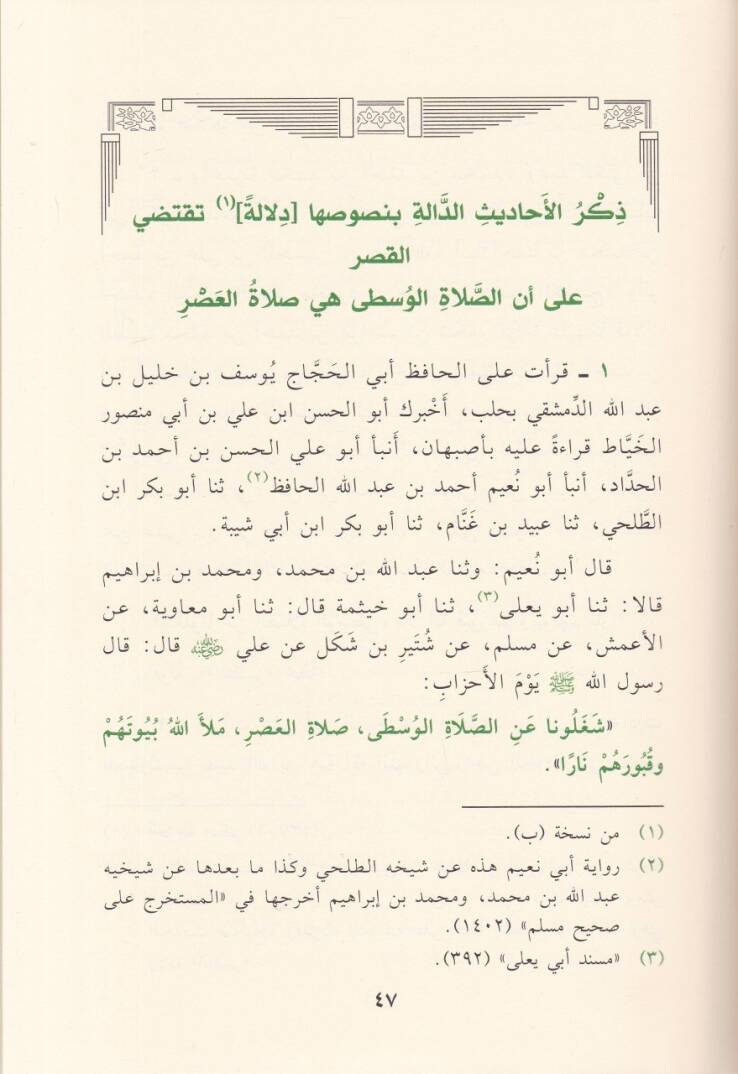 ذِكْرُ الأَحاديثِ الدَّالةِ بنصوصها [دِلالةً](١) تقتضي
القصر
على أن الصَّلاةِ الوُسطى هي صلاةُ العَصْرِ
١ ـ قرأت على الحافظ أبي الحَجَّاج يُوسف بن خليل بن
عبد الله الدِّمشقي بحلب، أَخْبرك أبو الحسن ابن علي بن أبي منصور
الخَيَّاط قراءةً عليه بأصبهان، أَنبأ أبو علي الحسن بن أحمد بن
الحدَّاد، أنبأ أبو نُعيم أحمد بن عبد الله الحافظ(٢)، ثنا أبو بكر ابن
الطَّلحي، ثنا عبيد بن غَنَّام، ثنا أبو بكر ابن أبي شيبة.
قال أبو نُعيم: وثنا عبد الله بن محمد، ومحمد بن إبراهيم
قالا: ثنا أبو يعلى(٣)، ثنا أبو خيثمة قال: ثنا أبو معاوية، عن
الأعمش، عن مسلم، عن شُتَيرِ بن شَكَل عن علي رضي الله عنه قال: قال
رسول الله ﷺ يَوْمَ الأَحزابِ:
«شَغَلُونا عَنِ الصَّلَاةِ الوُسْطَى، صَلاةِ العَصْرِ، مَلأَ اللهُ بُيُوتَهُمْ
وقُبُورَهُمْ نَارًا».
(١) من نسخة (ب).
(٢) رواية أبي نعيم هذه عن شيخه الطلحي وكذا ما بعدها عن شيخيه
عبد الله بن محمد، ومحمد بن إبراهيم أخرجها في «المستخرج على
صحيح مسلم» (١٤٠٢).
(٣) «مسند أبي يعلى» (٣٩٢).
٤٧